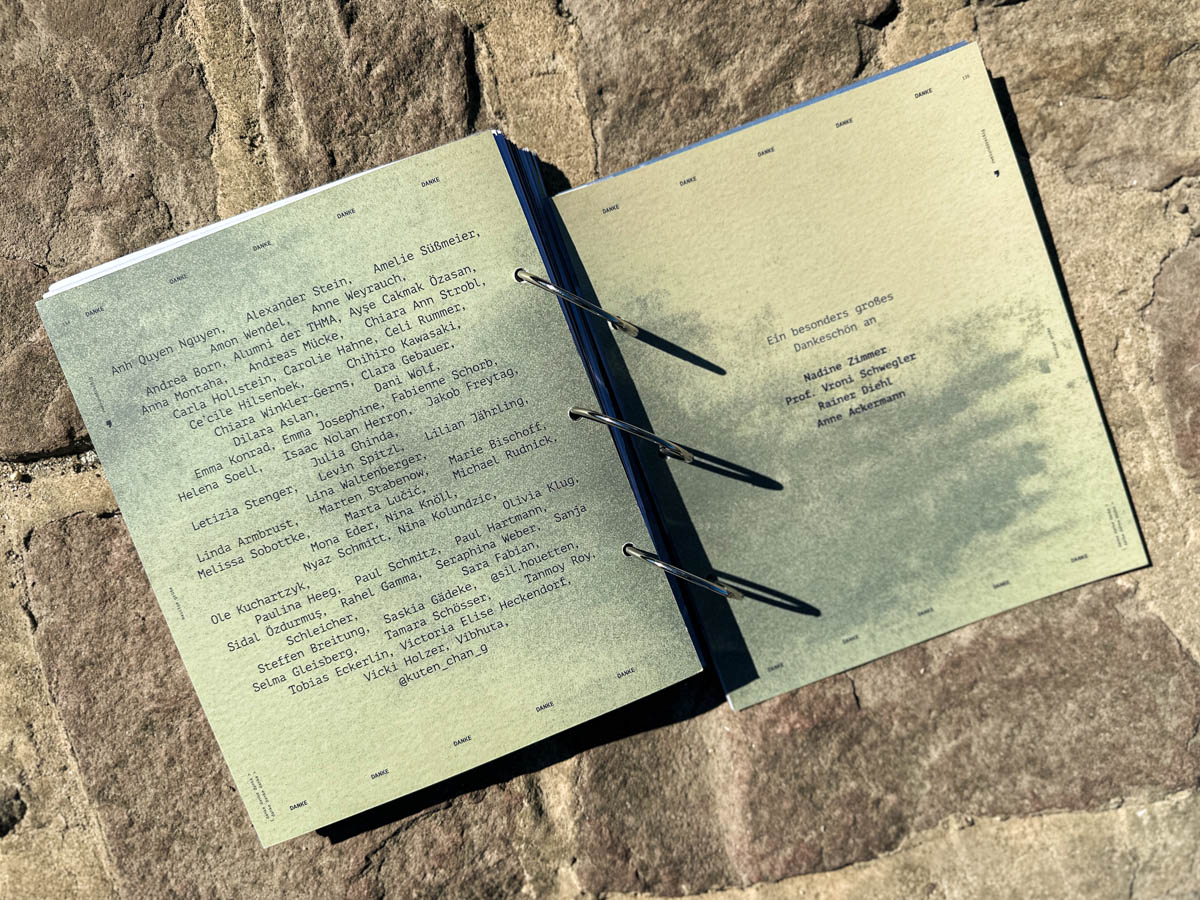 DANKE DANKE DANKE DANKE DANKE
Anh Quyen Nguyen, Alexander Stein, Amelie Süßmeier,
Amon Wendel, Anne Weyrauch,
Andrea Born, Alumni der THMA, Ayşe Cakmak Özasan,
Anna Montaha, Andreas Mücke, Chiara Ann Strobl,
Carla Hollstein, Carolie Hahne, Celi Rummer,
Ce'cile Hilsenbek, Chihiro Kawasaki,
Chiara Winkler-Gerns, Clara Gebauer,
Dilara Aslan, Dani Wolf,
Emma Konrad, Emma Josephine, Fabienne Schorb,
Helena Soell, Isaac Nolan Herron, Jakob Freytag,
Julia Ghinda,
Letizia Stenger, Levin Spitzl, Lilian Jährling,
Lina Waltenberger,
Linda Armbrust, Marten Stabenow, Marie Bischoff,
Melissa Sobottke, Marta Lučić, Michael Rudnick,
Mona Eder, Nina Knöll,
Nyaz Schmitt, Nina Kolundzic,
Ole Kuchartzyk, Paul Schmitz, Olivia Klug,
Paulina Heeg, Paul Hartmann,
Sidal Özdurmuş, Rahel Gamma, Seraphina Weber, Sanja
Schleicher, Sara Fabian,
Steffen Breitung, Saskia Gädeke, @sil.houetten,
Selma Gleisberg, Tamara Schösser, Tanmoy Roy,
Tobias Eckerlin, Victoria Elise Heckendorf,
Vicki Holzer, Vibhuta,
@kuten_chan_g
DANKE DANKE DANKE DANKE DANKE
DANKE DANKE DANKE DANKE DANKE
Ein besonders großes
Dankeschön an
Nadine Zimmer
Prof. Vroni Schwegler
Rainer Diehl
Anne Ackermann
DANKE DANKE DANKE DANKE DANKE